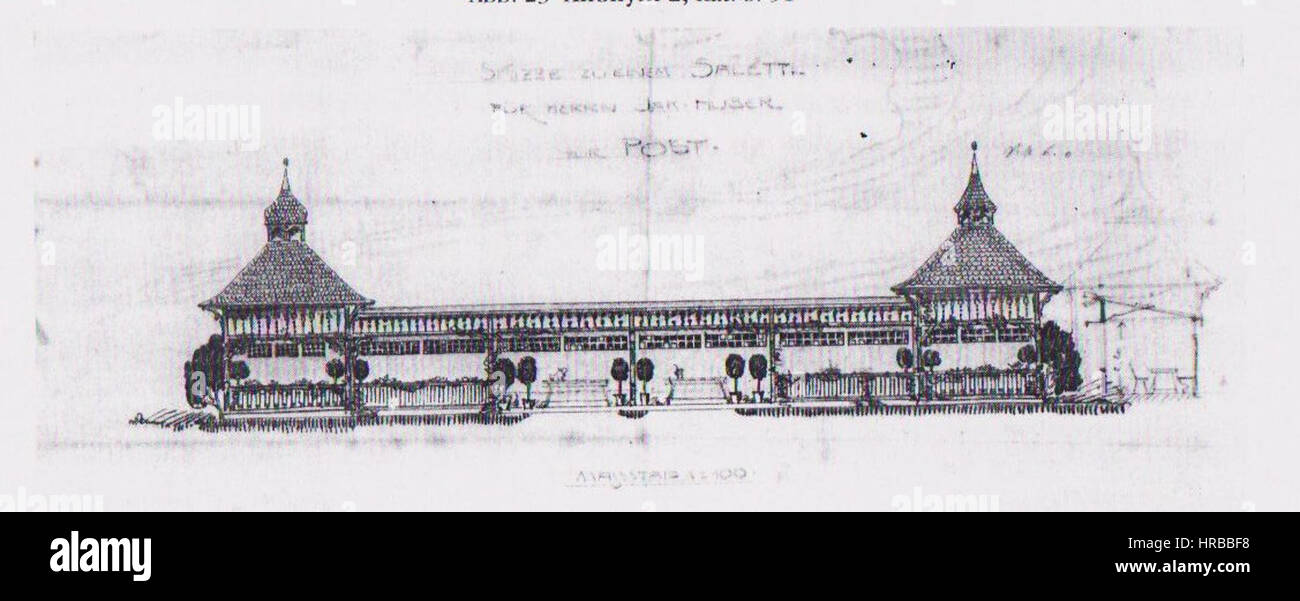 SKIZZE ZU EINEM SALETTL
FÜR HERRN JAK. HUBER.
ZUR POST.
MAẞSTAB 1:100.
alamy
alamy
alamy
alamy
Image ID: HRBBF8
www.alamy.com